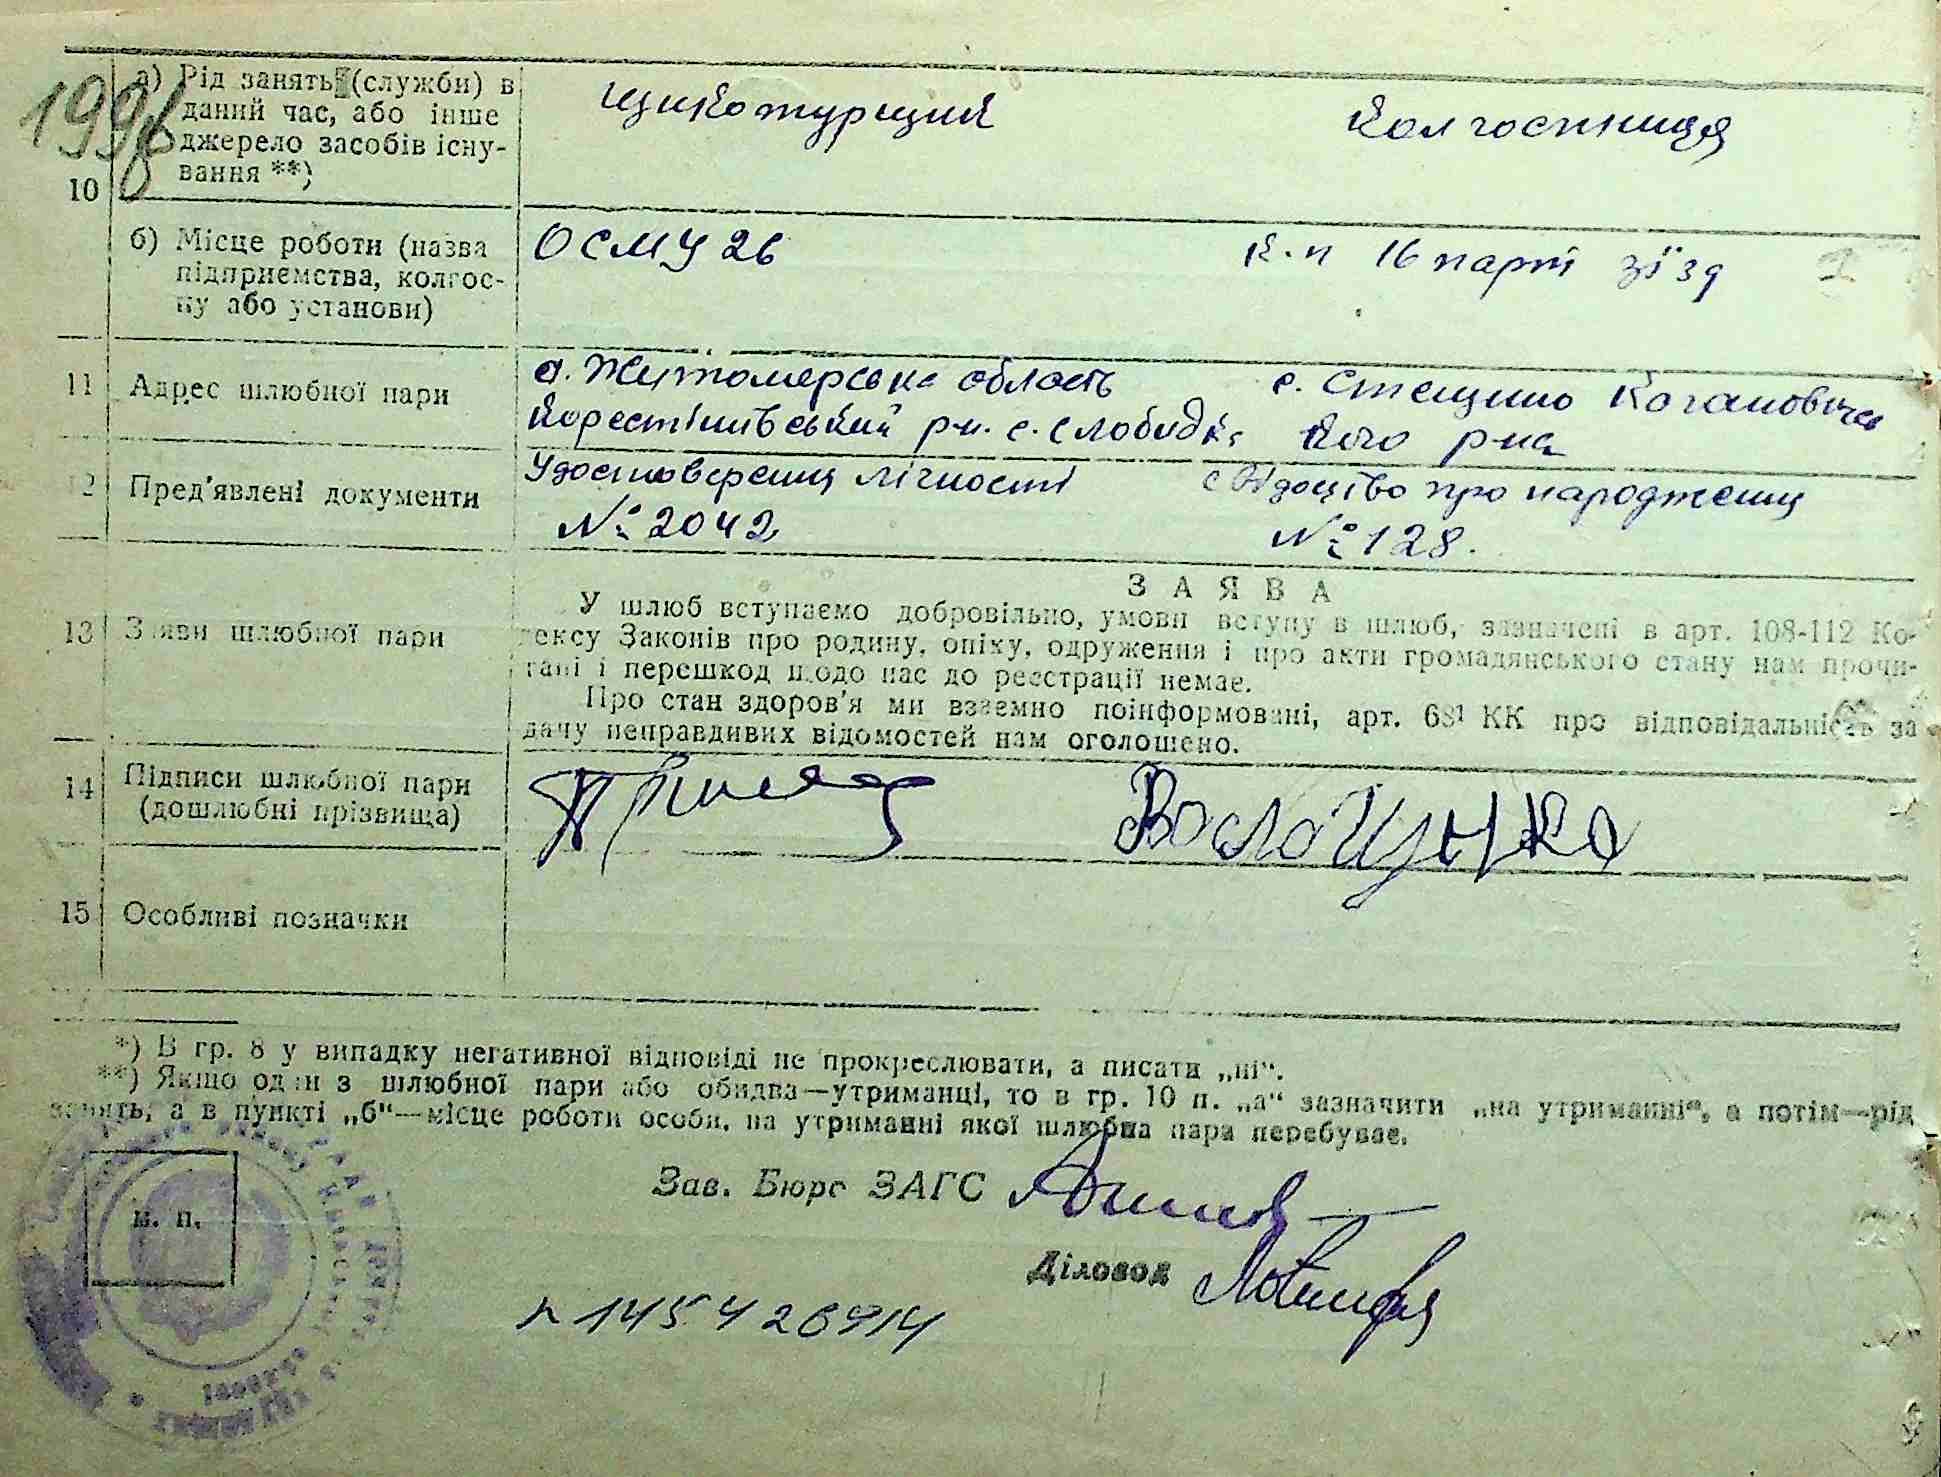 1996
10
а) Рід занять (служби) в
даний час, або інше
джерело засобів існу-
вання **)
щикотурщик
колгоспниця
б) Місце роботи (назва
підприємства, колгос-
пу або установи)
ОСМУ 26
к-п 16 парт зїзд
11
Адрес шлюбної пари
с. Житомерська область
Корестішівський р-н. с. Слобидка
с. Стещино Кагановичс
кого р-на
12
Пред'явлені документи
Удостоверения лічності
№ 2042
свідоцтво про народження
№ 128.
13
Заяви шлюбної пари
ЗАЯВА
У шлюб вступаємо добровільно, умови вступу в шлюб, зазначені в арт. 108-112 Ко-
дексу Законів про родину, опіку, одруження і про акти громадянського стану нам прочи-
тані і перешкод щодо нас до реєстрації немає.
Про стан здоров'я ми взаємно поінформовані, арт. 68¹ КК про відповідальність за
дачу неправдивих відомостей нам оголошено.
14
Підписи шлюбної пари
(дошлюбні прізвища)
Волощенко
15
Особливі позначки
*) В гр. 8 у випадку негативної відповіді не прокреслювати, а писати „ні“.
**) Якщо один з шлюбної пари або обидва—утриманці, то в гр. 10 п. „а“ зазначити „на утриманні“, а потім—рід
занять, а в пункті „б“—місце роботи особи, на утриманні якої шлюбна пара перебуває.
м. п.
Зав. Бюро ЗАГС
Діловод